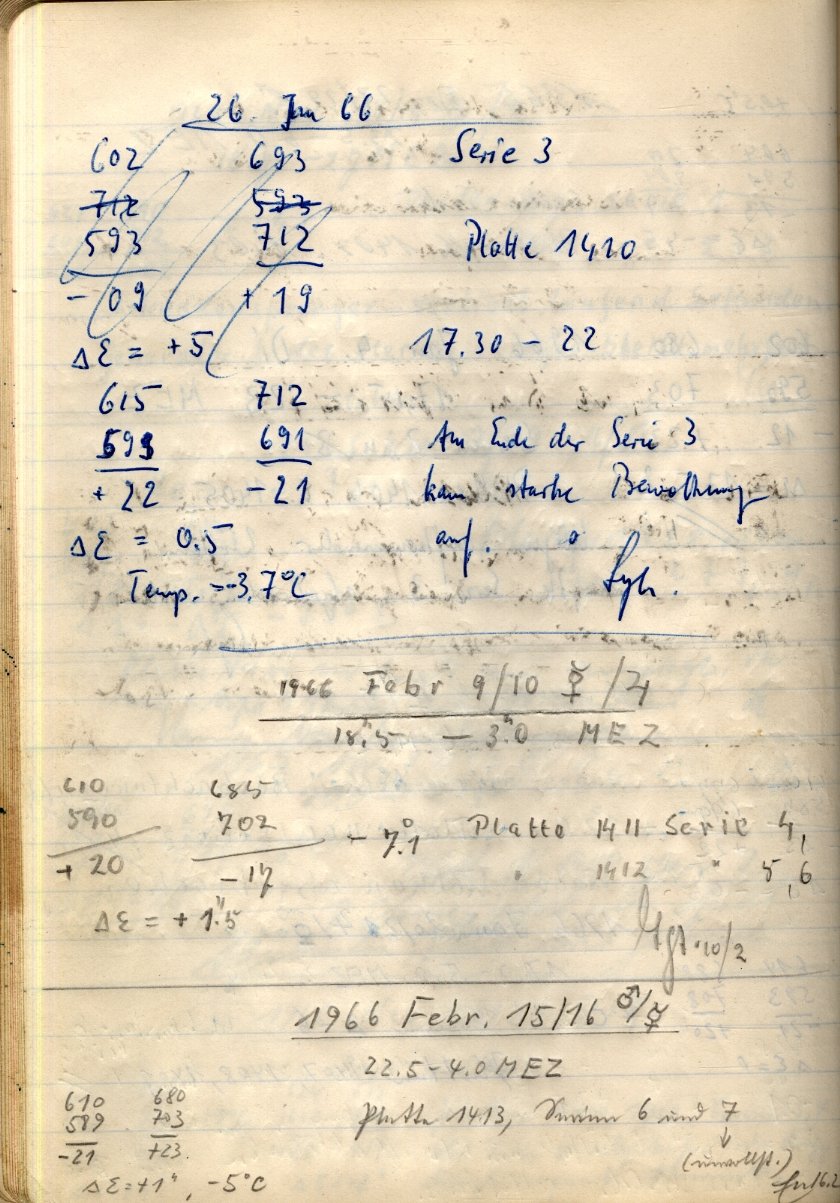 26. Jan 66
602 693 Serie 3
712 593
593 712 Platte 1410
- 09 + 19
Δε = +5 17.30 - 22
615 712
593 691 Am Ende der Serie 3
+ 22 - 21 kam starke Bewölkung
Δε = 0.5 auf.
Temp. = -3,7°C
1966 Febr 9/10 ☿/♃
18.ʰ5 - 3.ʰ0 MEZ
610 685
590 702 - 7.°1 Platte 1411 Serie 4,
+ 20 - 17 " 1412 " 5,6
Δε = + 1."5
10/2
1966 Febr. 15/16 ♂/☿
22.5 - 4.0 MEZ
610 680
589 703 Platte 1413, Serien 6 und 7
-21 +23 ↓
(unvollst.)
Δε = +1", -5°C